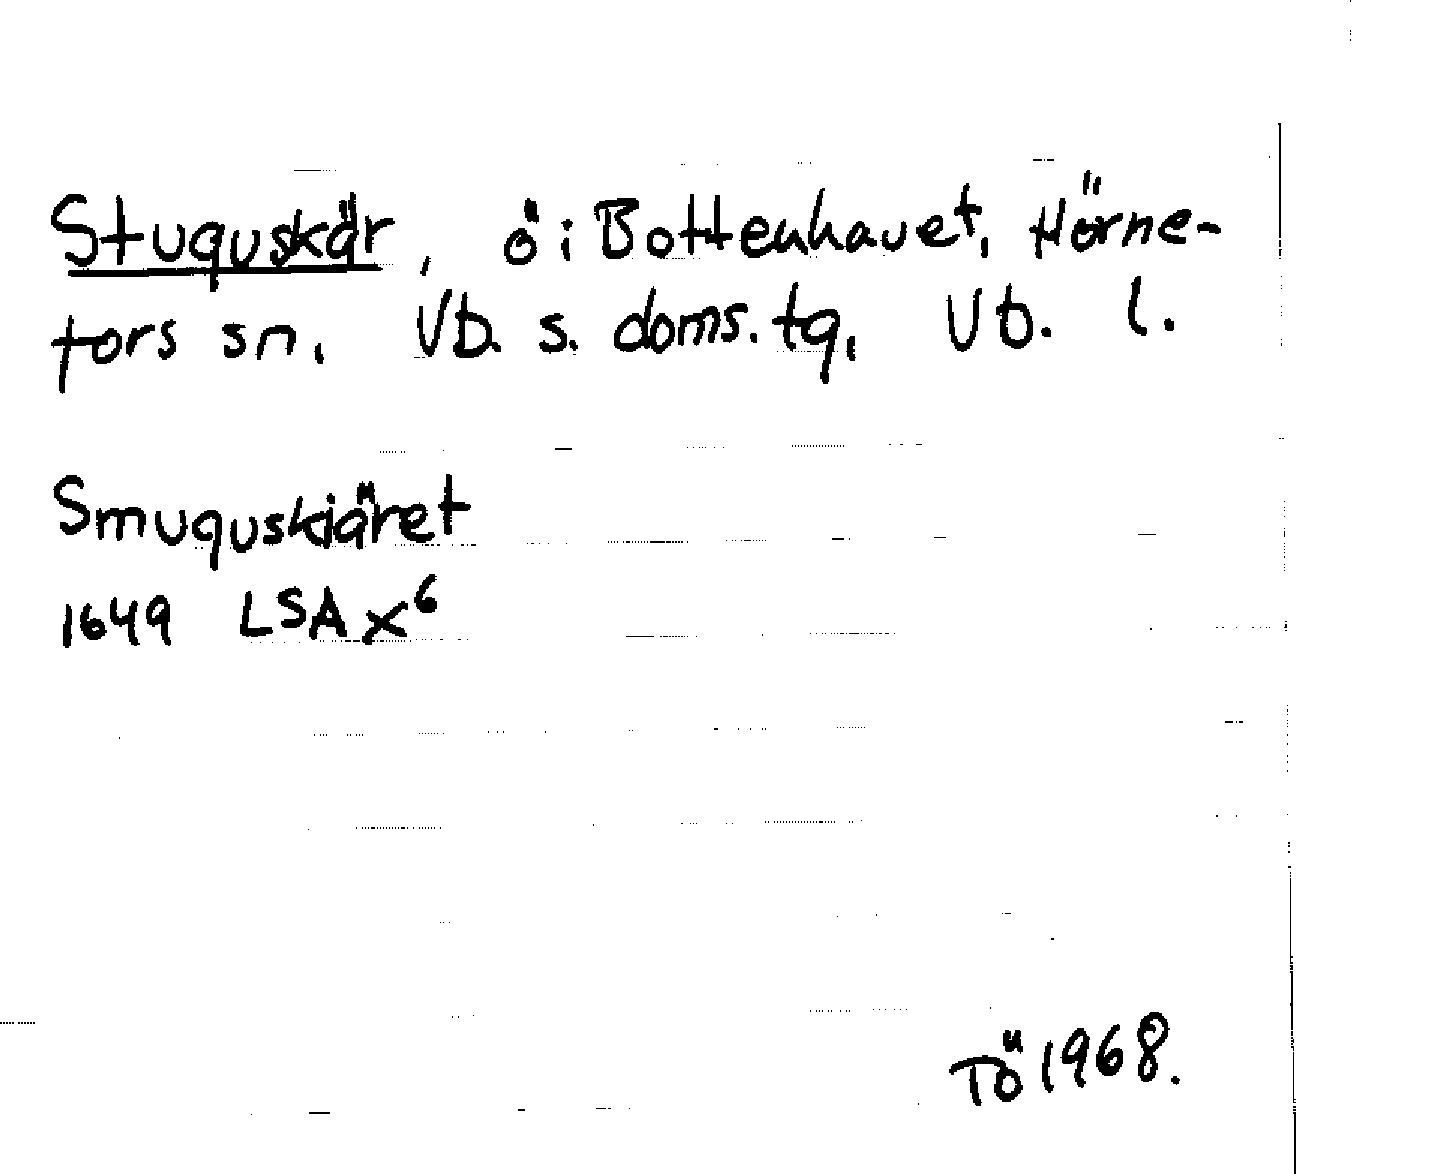 Stuguskär, ö i Bottenhavet, Hörne-
fors sn. Vb. s. doms. tg. Vb. l.
Smuguskiäret
1649 LSA X⁶
TÖ 1968.